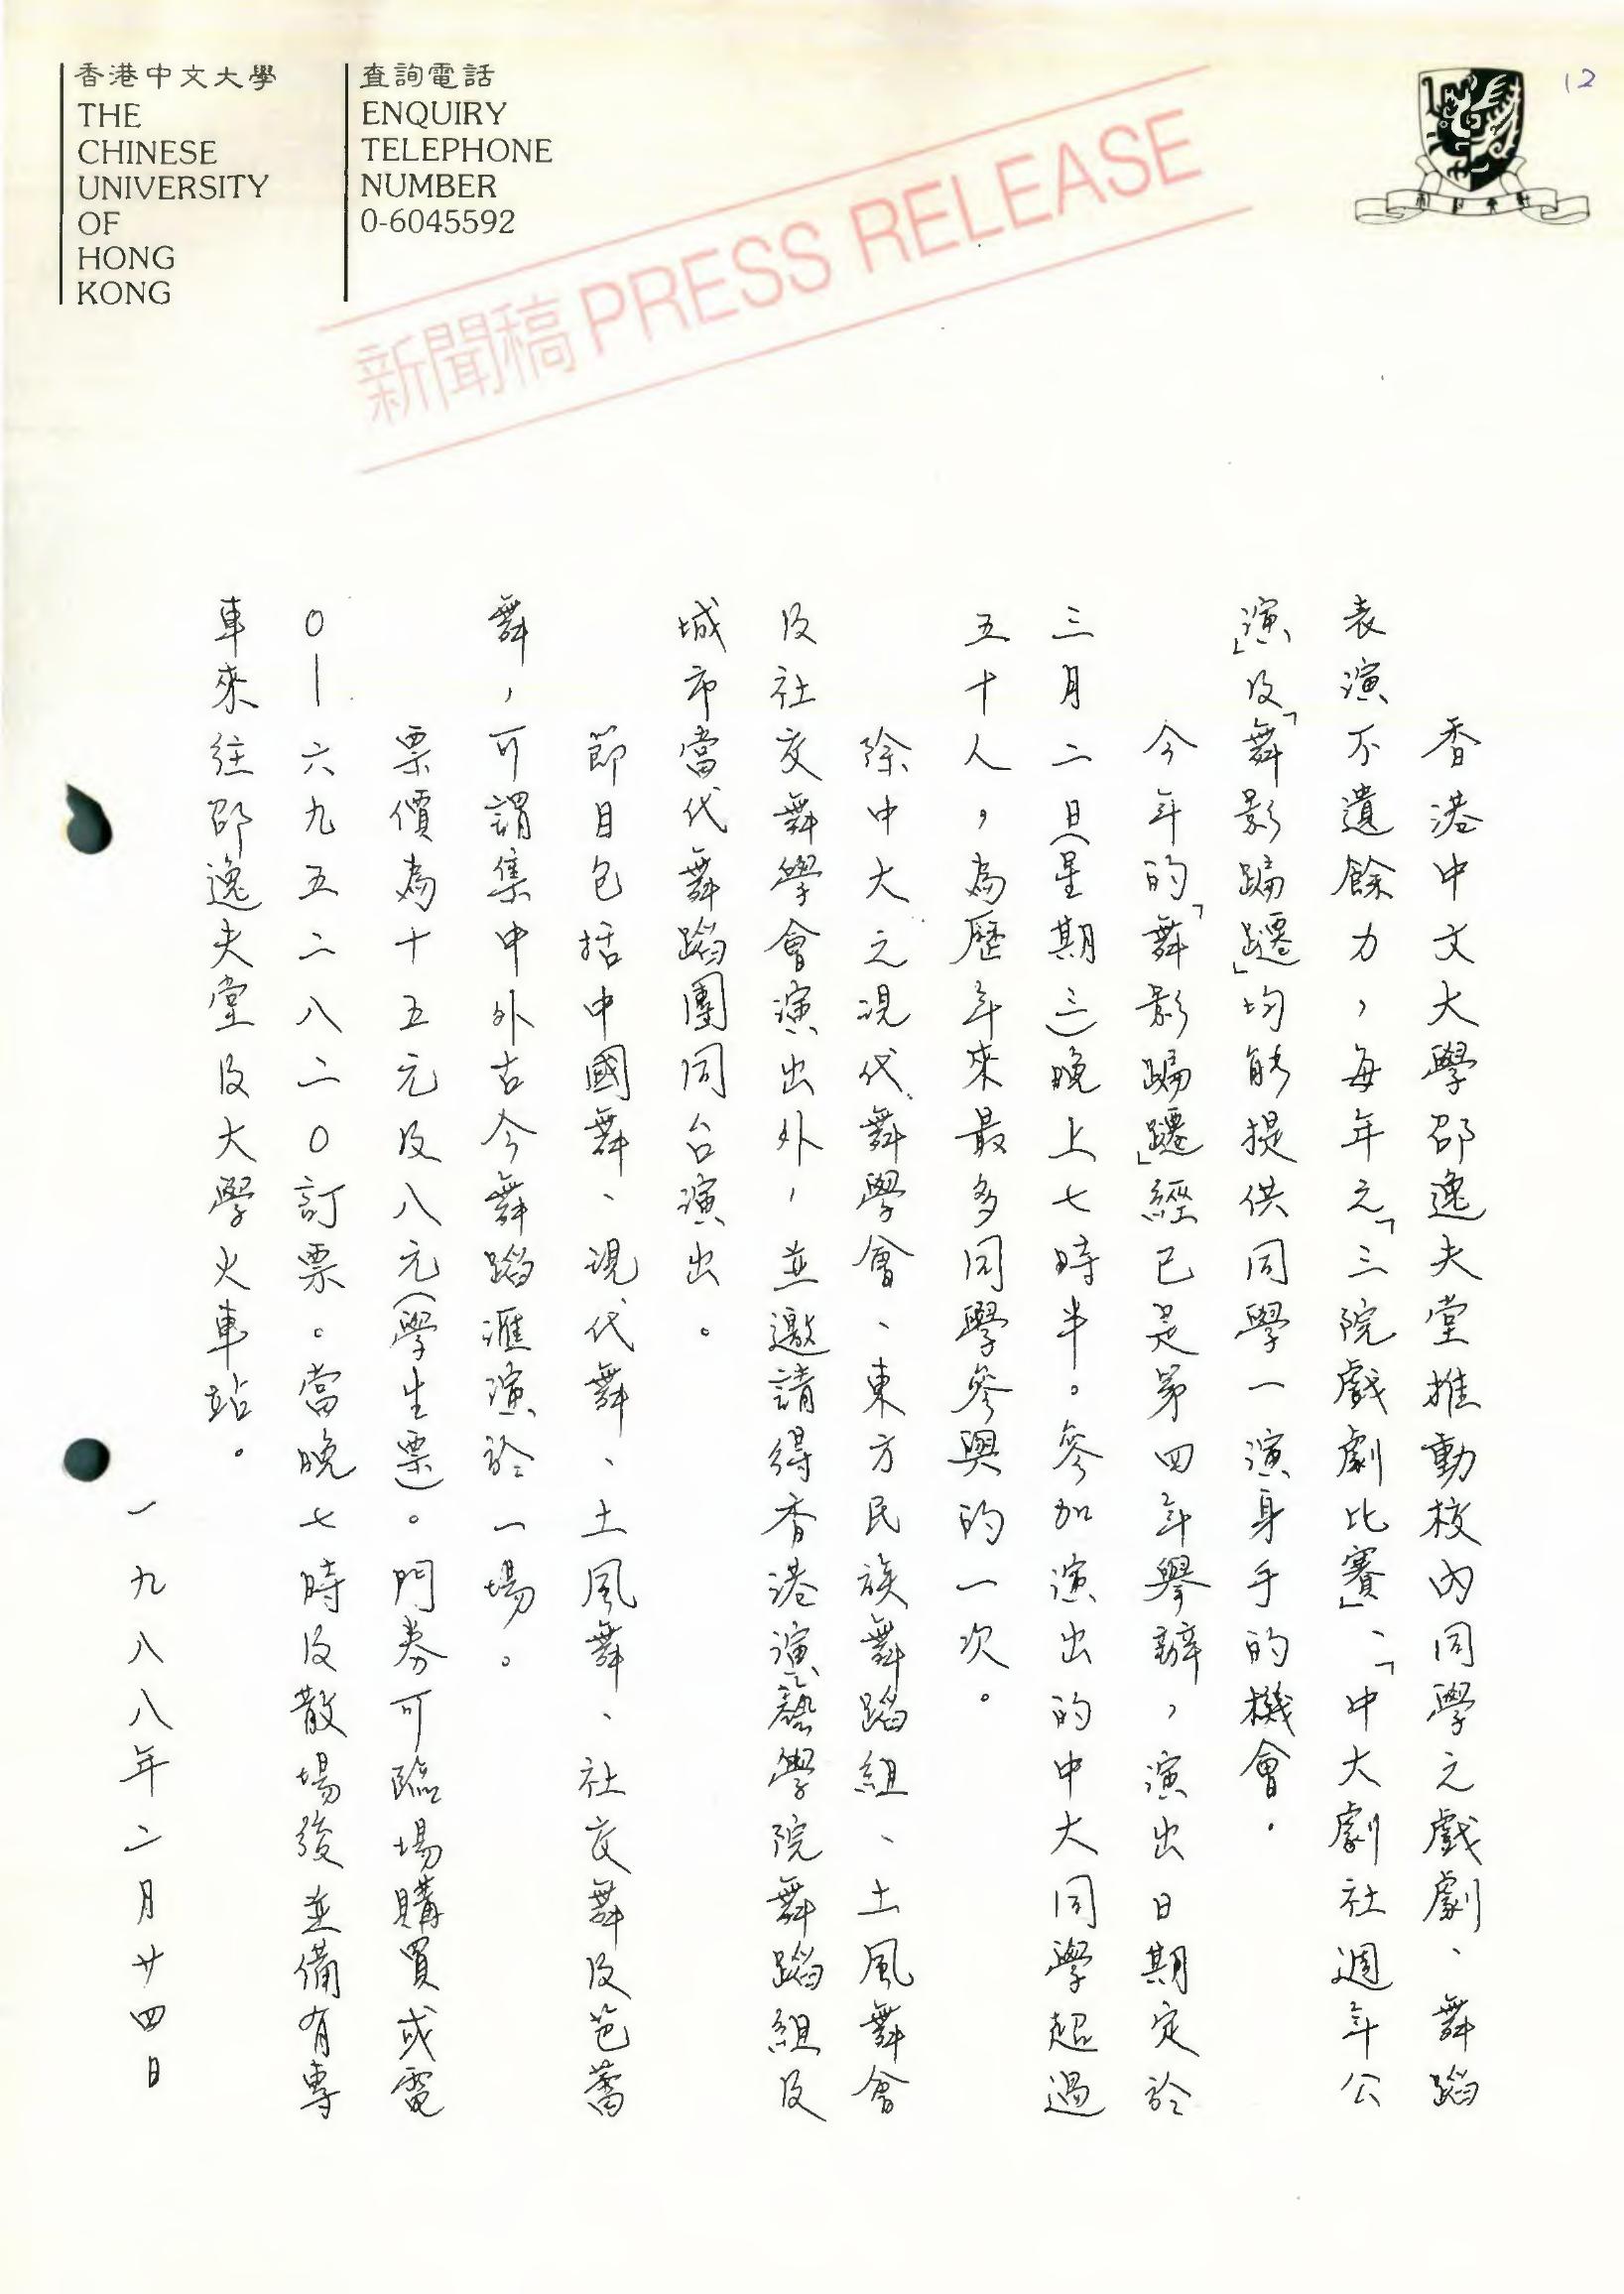 香港中文大學
THE
CHINESE
UNIVERSITY
OF
HONG
KONG
查詢電話
ENQUIRY
TELEPHONE
NUMBER
0-6045592
12
新聞稿 PRESS RELEASE
香港中文大學邵逸夫堂推動校內同學之戲劇、舞蹈
表演不遺餘力，每年之「三院戲劇比賽」、「中大劇社週年公
演」及「舞影蹁躚」均能提供同學一演身手的機會。
今年的「舞影蹁躚」經已是第四年舉辦，演出日期定於
三月二日(星期三)晚上七時半。參加演出的中大同學超過
五十人，為歷年來最多同學參與的一次。
除中大之現代舞學會、東方民族舞蹈組、土風舞會
及社交舞學會演出外，並邀請得香港演藝學院舞蹈組及
城市當代舞蹈團同台演出。
節目包括中國舞、現代舞、土風舞、社交舞及芭蕾
舞，可謂集中外古今舞蹈滙演於一場。
票價為十五元及八元(學生票)。門券可臨場購買或電
０—六九五二八二０訂票。當晚七時及散場後並備有專
車來往邵逸夫堂及大學火車站。
一九八八年二月廿四日